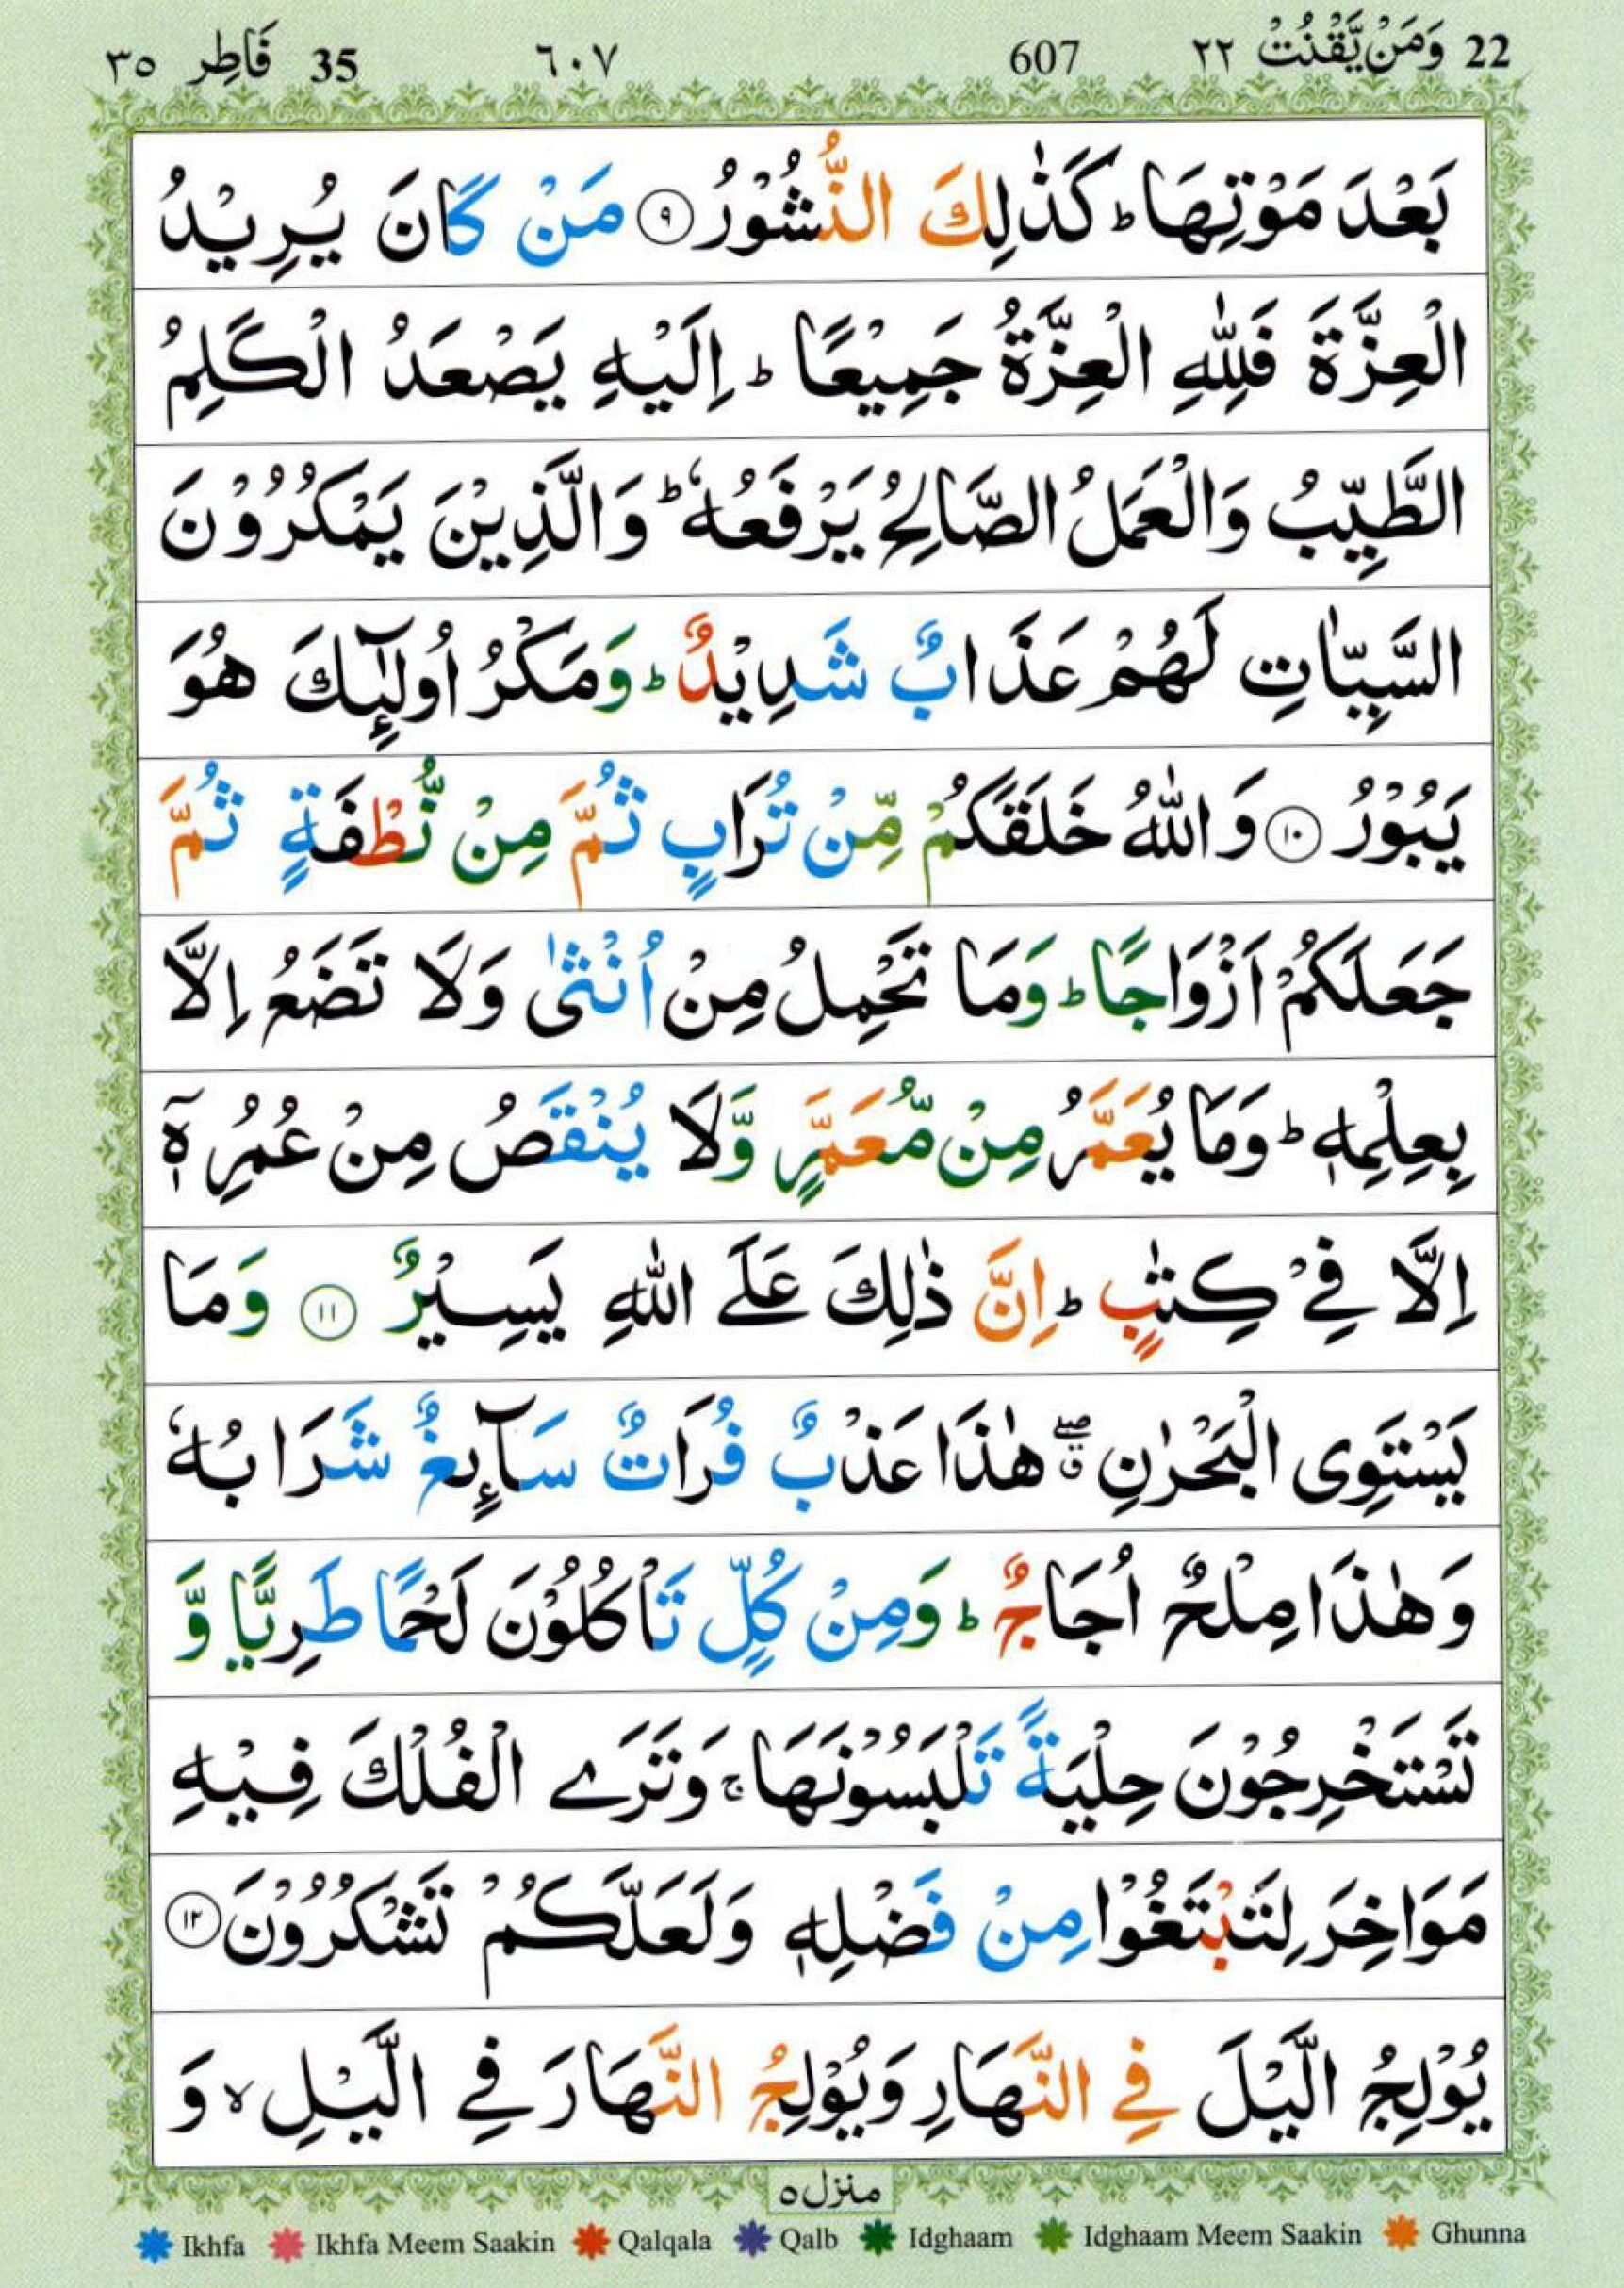 22 وَمَنْ يَّقْنُتْ ٢٢ 607 ٦٠٧ 35 فَاطِر ٣٥
بَعْدَ مَوْتِهَا ؕ كَذٰلِكَ النُّشُوْرُ ۹ مَنْ كَانَ يُرِيْدُ
الْعِزَّةَ فَلِلّٰهِ الْعِزَّةُ جَمِيْعًا ؕ اِلَيْهِ يَصْعَدُ الْكَلِمُ
الطَّيِّبُ وَالْعَمَلُ الصَّالِحُ يَرْفَعُهٗ ؕ وَالَّذِيْنَ يَمْكُرُوْنَ
السَّيِّاٰتِ لَهُمْ عَذَابٌ شَدِيْدٌ ؕ وَمَكْرُ اُولٰٓئِكَ هُوَ
يَبُوْرُ ۱۰ وَاللّٰهُ خَلَقَكُمْ مِّنْ تُرَابٍ ثُمَّ مِنْ نُّطْفَةٍ ثُمَّ
جَعَلَكُمْ اَزْوَاجًا ؕ وَمَا تَحْمِلُ مِنْ اُنْثٰى وَلَا تَضَعُ اِلَّا
بِعِلْمِهٖ ؕ وَمَا يُعَمَّرُ مِنْ مُّعَمَّرٍ وَّلَا يُنْقَصُ مِنْ عُمُرِهٖۤ
اِلَّا فِيْ كِتٰبٍ ؕ اِنَّ ذٰلِكَ عَلَى اللّٰهِ يَسِيْرٌ ۱۱ وَمَا
يَسْتَوِى الْبَحْرٰنِ ۖۗ هٰذَا عَذْبٌ فُرَاتٌ سَآئِغٌ شَرَابُهٗ
وَهٰذَا مِلْحٌ اُجَاجٌ ؕ وَمِنْ كُلٍّ تَاْكُلُوْنَ لَحْمًا طَرِيًّا وَّ
تَسْتَخْرِجُوْنَ حِلْيَةً تَلْبَسُوْنَهَا ۚ وَتَرَى الْفُلْكَ فِيْهِ
مَوَاخِرَ لِتَبْتَغُوْا مِنْ فَضْلِهٖ وَلَعَلَّكُمْ تَشْكُرُوْنَ ۱۲
يُوْلِجُ الَّيْلَ فِي النَّهَارِ وَيُوْلِجُ النَّهَارَ فِي الَّيْلِ ۙ وَ
منزل ٥
Ikhfa Ikhfa Meem Saakin Qalqala Qalb Idghaam Idghaam Meem Saakin Ghunna